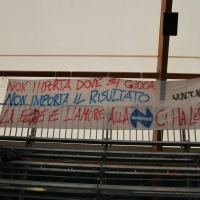 NON IMPORTA DOVE SI GIOCA
NON IMPORTA IL RISULTATO
LA FEDE E L'AMORE ALLA N C'HA LE
U.N.T.